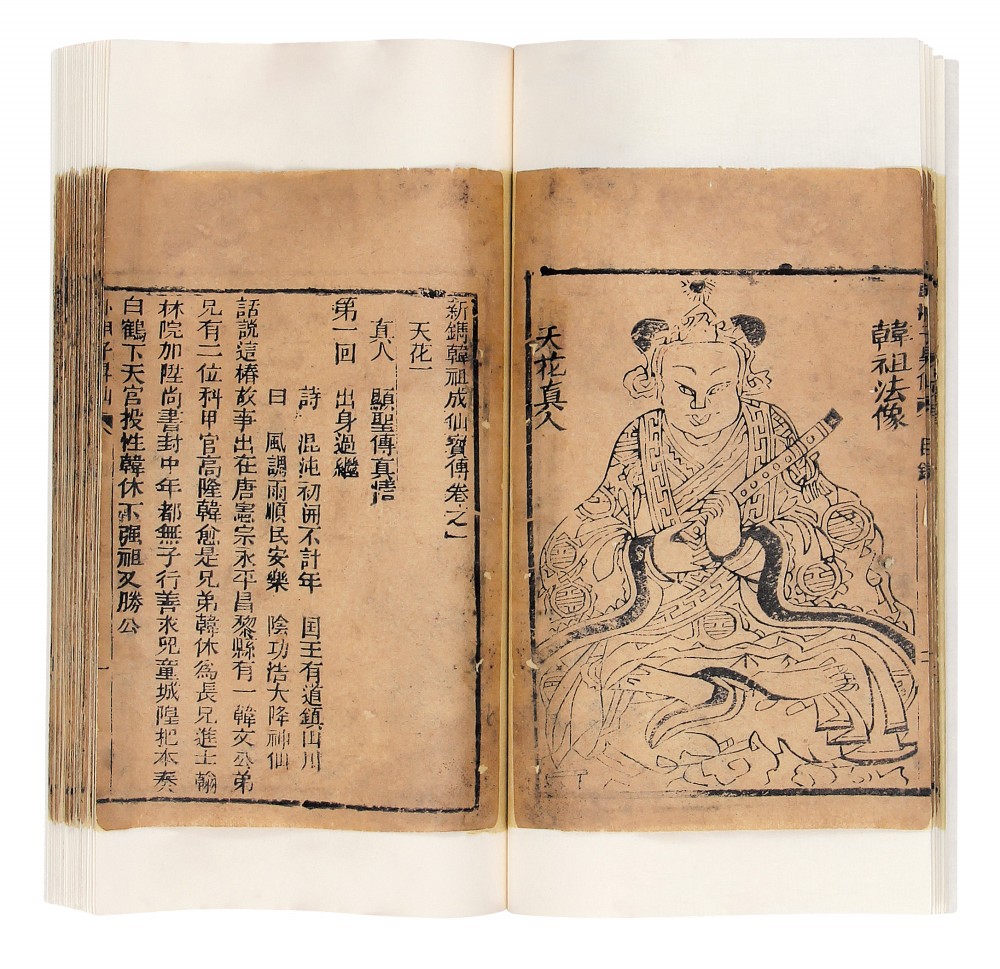 韓祖法像
天花真人
新鐫韓祖成仙寶傳卷之一
天花一
真人 顯聖傳真悟
第一回 出身過繼
詩 混沌初開不計年 国王有道鎮山川
曰 風調雨順民安樂 陰功浩大降神仙
話說這樁故事出在唐憲宗永平昌黎縣有一韓文公弟
兄有二位科甲官高隆韓愈是兄弟韓休為長兄進士翰
林院加陞尚書封中年都無子行善求児童城隍把本奏
白鶴下天宫投性韓休下強祖又勝公